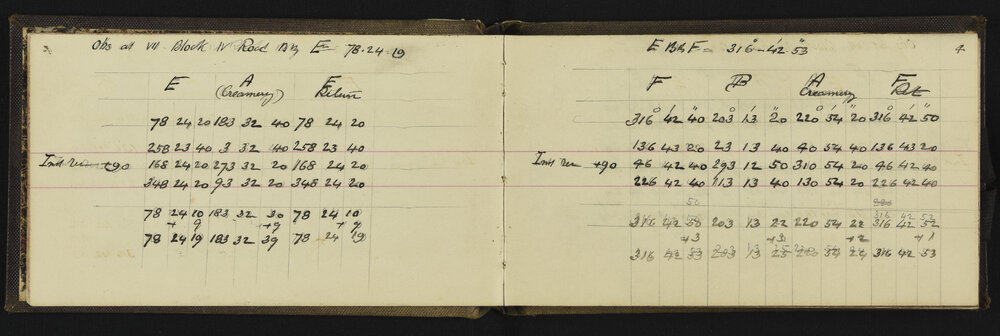 Obs at VII Block IV Road Brg E = 78·24·19
E A E
(Creamery) Return
78 24 20 183 32 40 78 24 20
258 23 40 3 32 40 258 23 40
+90 168 24 20 273 32 20 168 24 20
348 24 20 93 32 20 348 24 20
78 24 10 183 32 30 78 24 10
+ 9 +9 + 9
78 24 19 183 32 39 78 24 19
E Brg F = 316° - 42' 53" 4
F B A F
Creamery Ret
316° 42' 40" 203° 13' 20" 220° 54' 20" 316° 42' 50"
136 43 20 23 13 40 40 54 40 136 43 20
+90 46 42 40 293 12 50 310 54 20 46 42 40
226 42 40 113 13 40 130 54 20 226 42 40
50
316 42 52
316 42 50 203 13 22 220 54 22 316 42 52
+3 +3 +2 +1
316 42 53 203 13 25 220 54 24 316 42 53